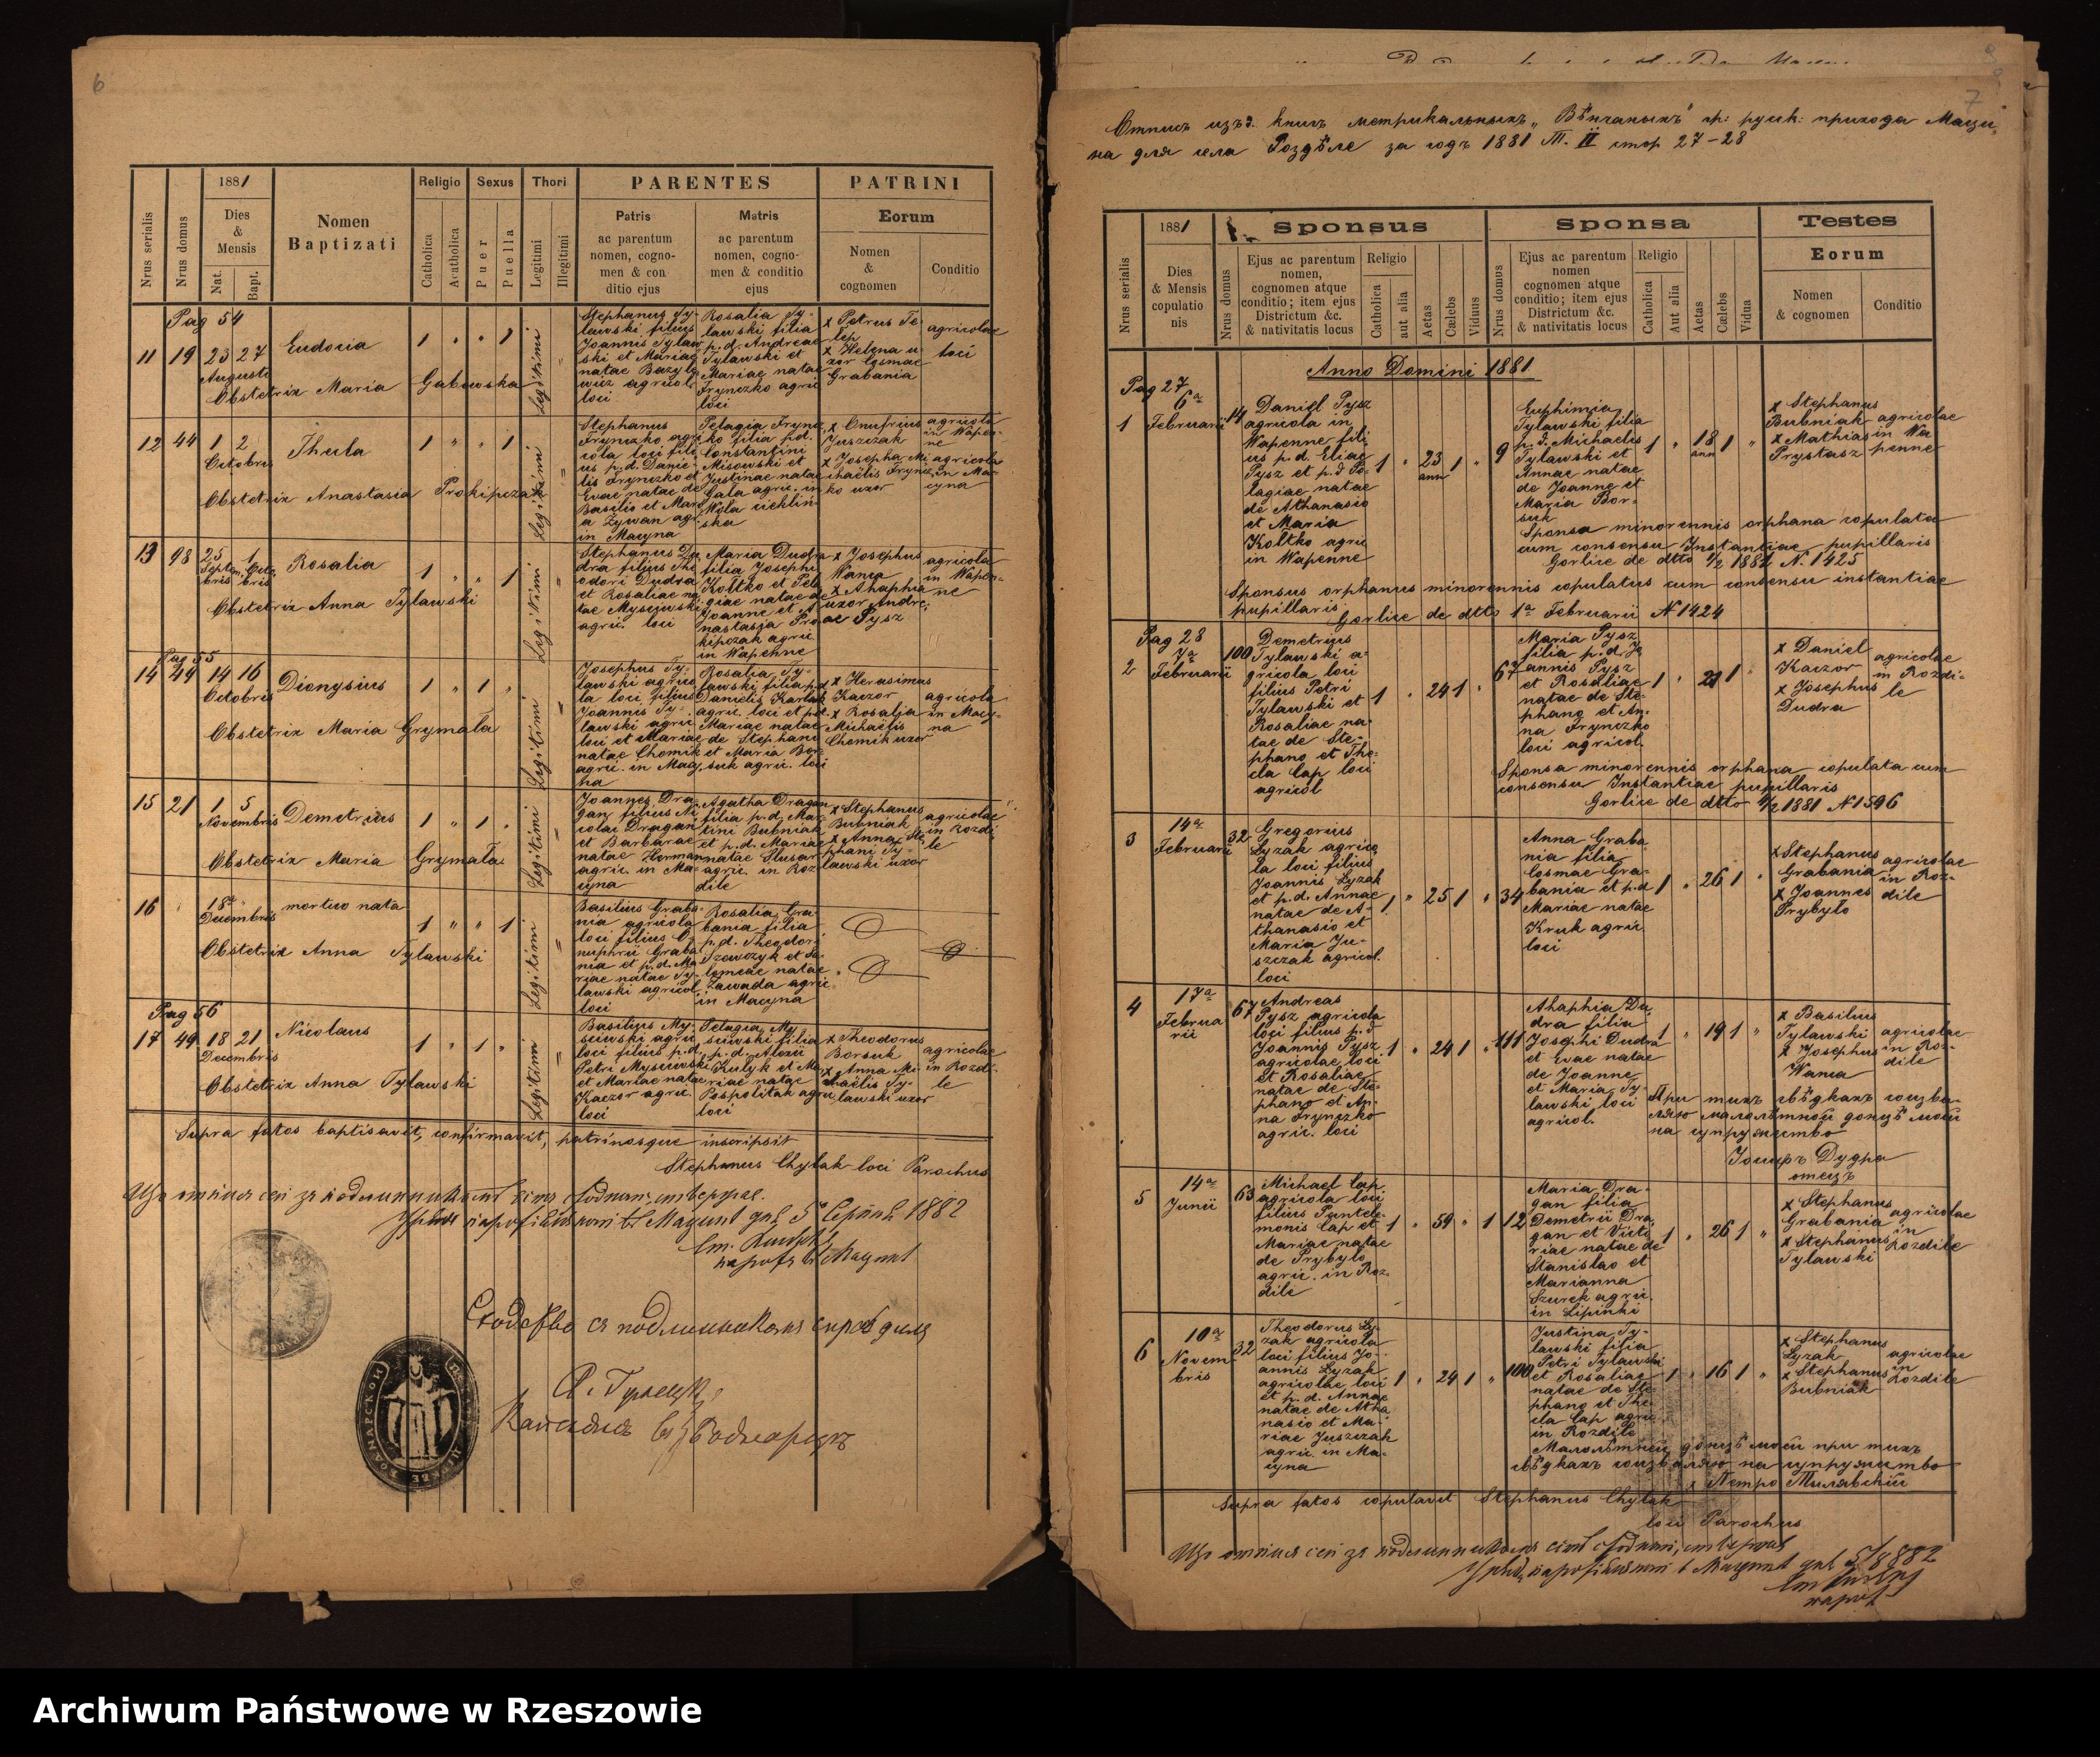 6
1881
Religio
Sexus
Thori
PARENTES
PATRINI
Nrus serialis
Nrus domus
Dies
&
Mensis
Nat.
Bapt.
Nomen
Baptizati
Catholica
Acatholica
Puer
Puella
Legitimi
Illegitimi
Patris
ac parentum
nomen, cogno-
men & con
ditio ejus
Matris
ac parentum
nomen, cogno-
men & conditio
ejus
Eorum
Nomen
&
cognomen
Conditio
Pag 54
11 19 23 27
Augusti
Eudoxia
1 " " 1
Legitimi
Stephanus Ty-
lawski filius
Joannis Tylaw
ski et Mariae
natae Bazyle
wicz agricol
loci
Rosalia Ty-
lawski filia
p. d. Andreae
Tylawski et
Mariae natae
Frynczko agric
loci
x Petrus Te-
lep
x Helena u
xor Cosmae
Grabania
agricolae
loci
Obstetrix Maria Gabowska
12 44 1 2
Octobris
Thecla
1 " " 1
Legitimi
Stephanus
Frynczko agri
cola loci fili
us p.d. Danie-
lis Frynczko et
Evae natae de
Basilio et Mari
a Zywan agr
in Macyna
Pelagia Frync
ko filia p.d.
Constantini
Misowski et
Justinae natae
Gala agric. in
Mcla
ska
x Onufrius
Juszczak
x Josepha Mi
chaëlis Frync
ko uxor
agricola
in Wapen-
ne
agricola
in Ma-
cyna
Obstetrix Anastasia Prokipczak
13 98 25 1
Septem Octo
bris bris
Rosalia
1 " " 1
Legitimi
Stephanus Du
dra filius The
odori Dudra
et Rosaliae na
tae Mysewski
agric. loci
Maria Dudra
filia Josephi
Koltko et Pela
giae natae de
Joanne et A
nastasia Pro
kipczak agric
in Wapenne
x Josephus
Wanca
x Ahaphia
uxor Andre
ae Pysz
agricola
in Wapen-
ne
Obstetrix Anna Tylawski
Pag 55
14 44 14 16
Octobris
Dionysius
1 " 1 "
Legitimi
Josephus Ty-
lawski agrico
la loci filius
Joannis Ty-
lawski agric
loci et Mariae
natae Chomik
agric. in Macy
na
Rosalia Ty-
lawski filia p.d.
Danielis Karlak
agric. loci et p.d.
Mariae natae
de Stephano
et Maria Bor
suk agric. loci
x Herasimus
Kaczor
x Rosalia
Michaëlis
Chomik uxor
agricola
in Macy-
na
Obstetrix Maria Grymała
15 21 1 5
Novembris
Demetrius
1 " 1 "
Legitimi
Joannes Dra-
gan filius Ni
colai Dragan
et Barbarae
natae Herman
agric. in Ma-
cyna
Agatha Dragan
filia p.d. Mar
tini Bubniak
et p.d. Mariae
natae Slusar
agric. in Roz
dile
x Stephanus
Bubniak
x Anna Ste
phani Ty-
lawski uxor
agricolae
in Rozdi
le
Obstetrix Maria Grymała
16 18a
Decembris
mortuo nata
1 " " 1
Legitimi
Basilius Graba
nia agricola
loci filius O
nuphrii Graba
nia et p.d. Ma
riae natae Ty-
lawski agricol
loci
Rosalia Gra-
bania filia
p.d. Theodor
Szewczyk et Sa-
lomeae natae
Zawada agric
in Macyna
Obstetrix Anna Tylawski
Pag 56
17 49 18 21
Decembris
Nicolaus
1 " 1 "
Legitimi
Basilius My-
sewski agric
loci filius p.d.
Petri Mysewski
et Mariae natae
Kaczor agric.
loci
Pelagia My
sewski filia
p.d. Alexii
Kulyk et Ma
riae natae
Pospolitak agric
loci
x Theodorus
Borsuk
x Anna Mi
chaëlis Ty-
lawski uxor
agricolae
in Rozdi-
le
Obstetrix Anna Tylawski
Supra fatos baptisavit, confirmavit, patrinosque inscripsit
Stephanus Chylak loci Parochus
7
Отписъ изъ книгъ метрикальныхъ „Вѣнчаныхъ" гр: русk: прихода Маци-
на для села Роздѣле за годъ 1881 Т. II стор 27-28
1881
Sponsus
Sponsa
Testes
Nrus serialis
Dies
& Mensis
copulatio
nis
Nrus domus
Ejus ac parentum
nomen,
cognomen atque
conditio; item ejus
Districtum &c.
& nativitatis locus
Religio
Catholica
aut alia
Aetas
Cælebs
Viduus
Nrus domus
Ejus ac parentum
nomen
cognomen atque
conditio; item ejus
Districtum &c.
& nativitatis locus
Religio
Catholica
Aut alia
Aetas
Cælebs
Vidua
Eorum
Nomen
& cognomen
Conditio
Anno Domini 1881
Pag 27
1 6a
Februarii
14
Daniel Pysz
agricola in
Wapenne fili
us p.d. Eliae
Pysz et p.d Pe
lagiae natae
de Athanasio
et Maria
Koltko agric
in Wapenne
1 " 23 1 "
ann
9
Euphimia
Tylawski filia
p.d. Michaelis
Tylawski et
Annae natae
de Joanne et
Maria Bor-
suk
1 " 18 1 "
ann
x Stephanus
Bubniak
x Mathias
Prystasz
agricolae
in Wa
penne
Sponsa minorennis orphana copulata
cum consensu Instantiae pupillaris
Gorlice de dtto 1/2 1881 N. 1425
Sponsus orphanus minorennis copulatus cum consensu instantiae
pupillaris Gorlice de dtto 1a Februarii N 1424
Pag 28
2 7a
Februarii
100
Demetrius
Tylawski a-
gricola loci
filius Petri
Tylawski et
Rosaliae na-
tae de Ste-
phano et The-
cla Cap loci
agricol
1 " 24 1 "
67
Maria Pysz
filia p.d. Jo
annis Pysz
et Rosaliae
natae de Ste-
phano et An-
na Frynczko
loci agricol.
1 " 21 1 "
x Daniel
Kaczor
x Josephus
Dudra
agricolae
in Rozdi-
le
Sponsa minorennis orphana copulata cum
consensu Instantiae pupillaris
Gorlice de dtto 4/2 1881 N 1596
3 14a
Februarii
32
Gregorius
Lyzak agrico
la loci filius
Joannis Lyzak
et p.d. Annae
natae de A-
thanasio et
Maria Ju-
szczak agricol.
loci
1 " 25 1 "
34
Anna Graba
nia filia
Cosmae Gra-
bania et p.d
Mariae natae
Kruk agric
loci
1 " 26 1 "
x Stephanus
Grabania
x Joannes
Prybyło
agricolae
in Roz-
dile
4 17a
Februa
rii
67
Andreas
Pysz agricola
loci filius p.d
Joannis Pysz
agricolae loci
et Rosaliae
natae de Ste-
phano et An-
na Frynczko
agric. loci
1 " 24 1 "
111
Ahaphia Du
dra filia
Josephi Dudra
et Evae natae
de Joanne
et Maria Ty-
lawski loci
agricol.
1 " 19 1 "
x Basilius
Tylawski
x Josephus
Wanca
agricolae
in Roz-
dile
При тихъ свѣдкахъ соизво-
ляю малолѣтной донцѣ моей
на супружество
Іосифъ Дудра
отецъ
5 14a
Junii
63
Michael Cap
agricola loci
filius Pantele
monis Cap et
Mariae natae
de Prybylo
agric. in Roz-
dile
1 " 59 " 1
12
Maria Dra-
gan filia
Demetrii Dra
gan et Victo
riae natae de
Stanislao et
Marianna
Szurek agric.
in Lipinki
1 " 26 1 "
x Stephanus
Grabania
x Stephanus
Tylawski
agricolae
in
Rozdile
6 10a
Novem-
bris
32
Theodorus Ly-
zak agricola
loci filius Jo-
annis Lyzak
agricolae loci
et p.d. Annae
natae de Atha
nasio et Ma-
riae Juszczak
agric. in Ma-
cyna
1 " 24 1 "
100
Justina Ty-
lawski filia
Petri Tylawski
et Rosaliae
natae de Ste-
phano et The-
cla Cap agric
in Rozdile
1 " 16 1 "
x Stephanus
Lyzak
x Stephanus
Bubniak
agricolae
in
Rozdile
Малолѣтней донцѣ моей при тихъ
свѣдкахъ соизволяю на супружество
x Петро Тилявскій
Supra fatos copulavit Stephanus Chylak
loci Parochus
Archiwum Państwowe w Rzeszowie